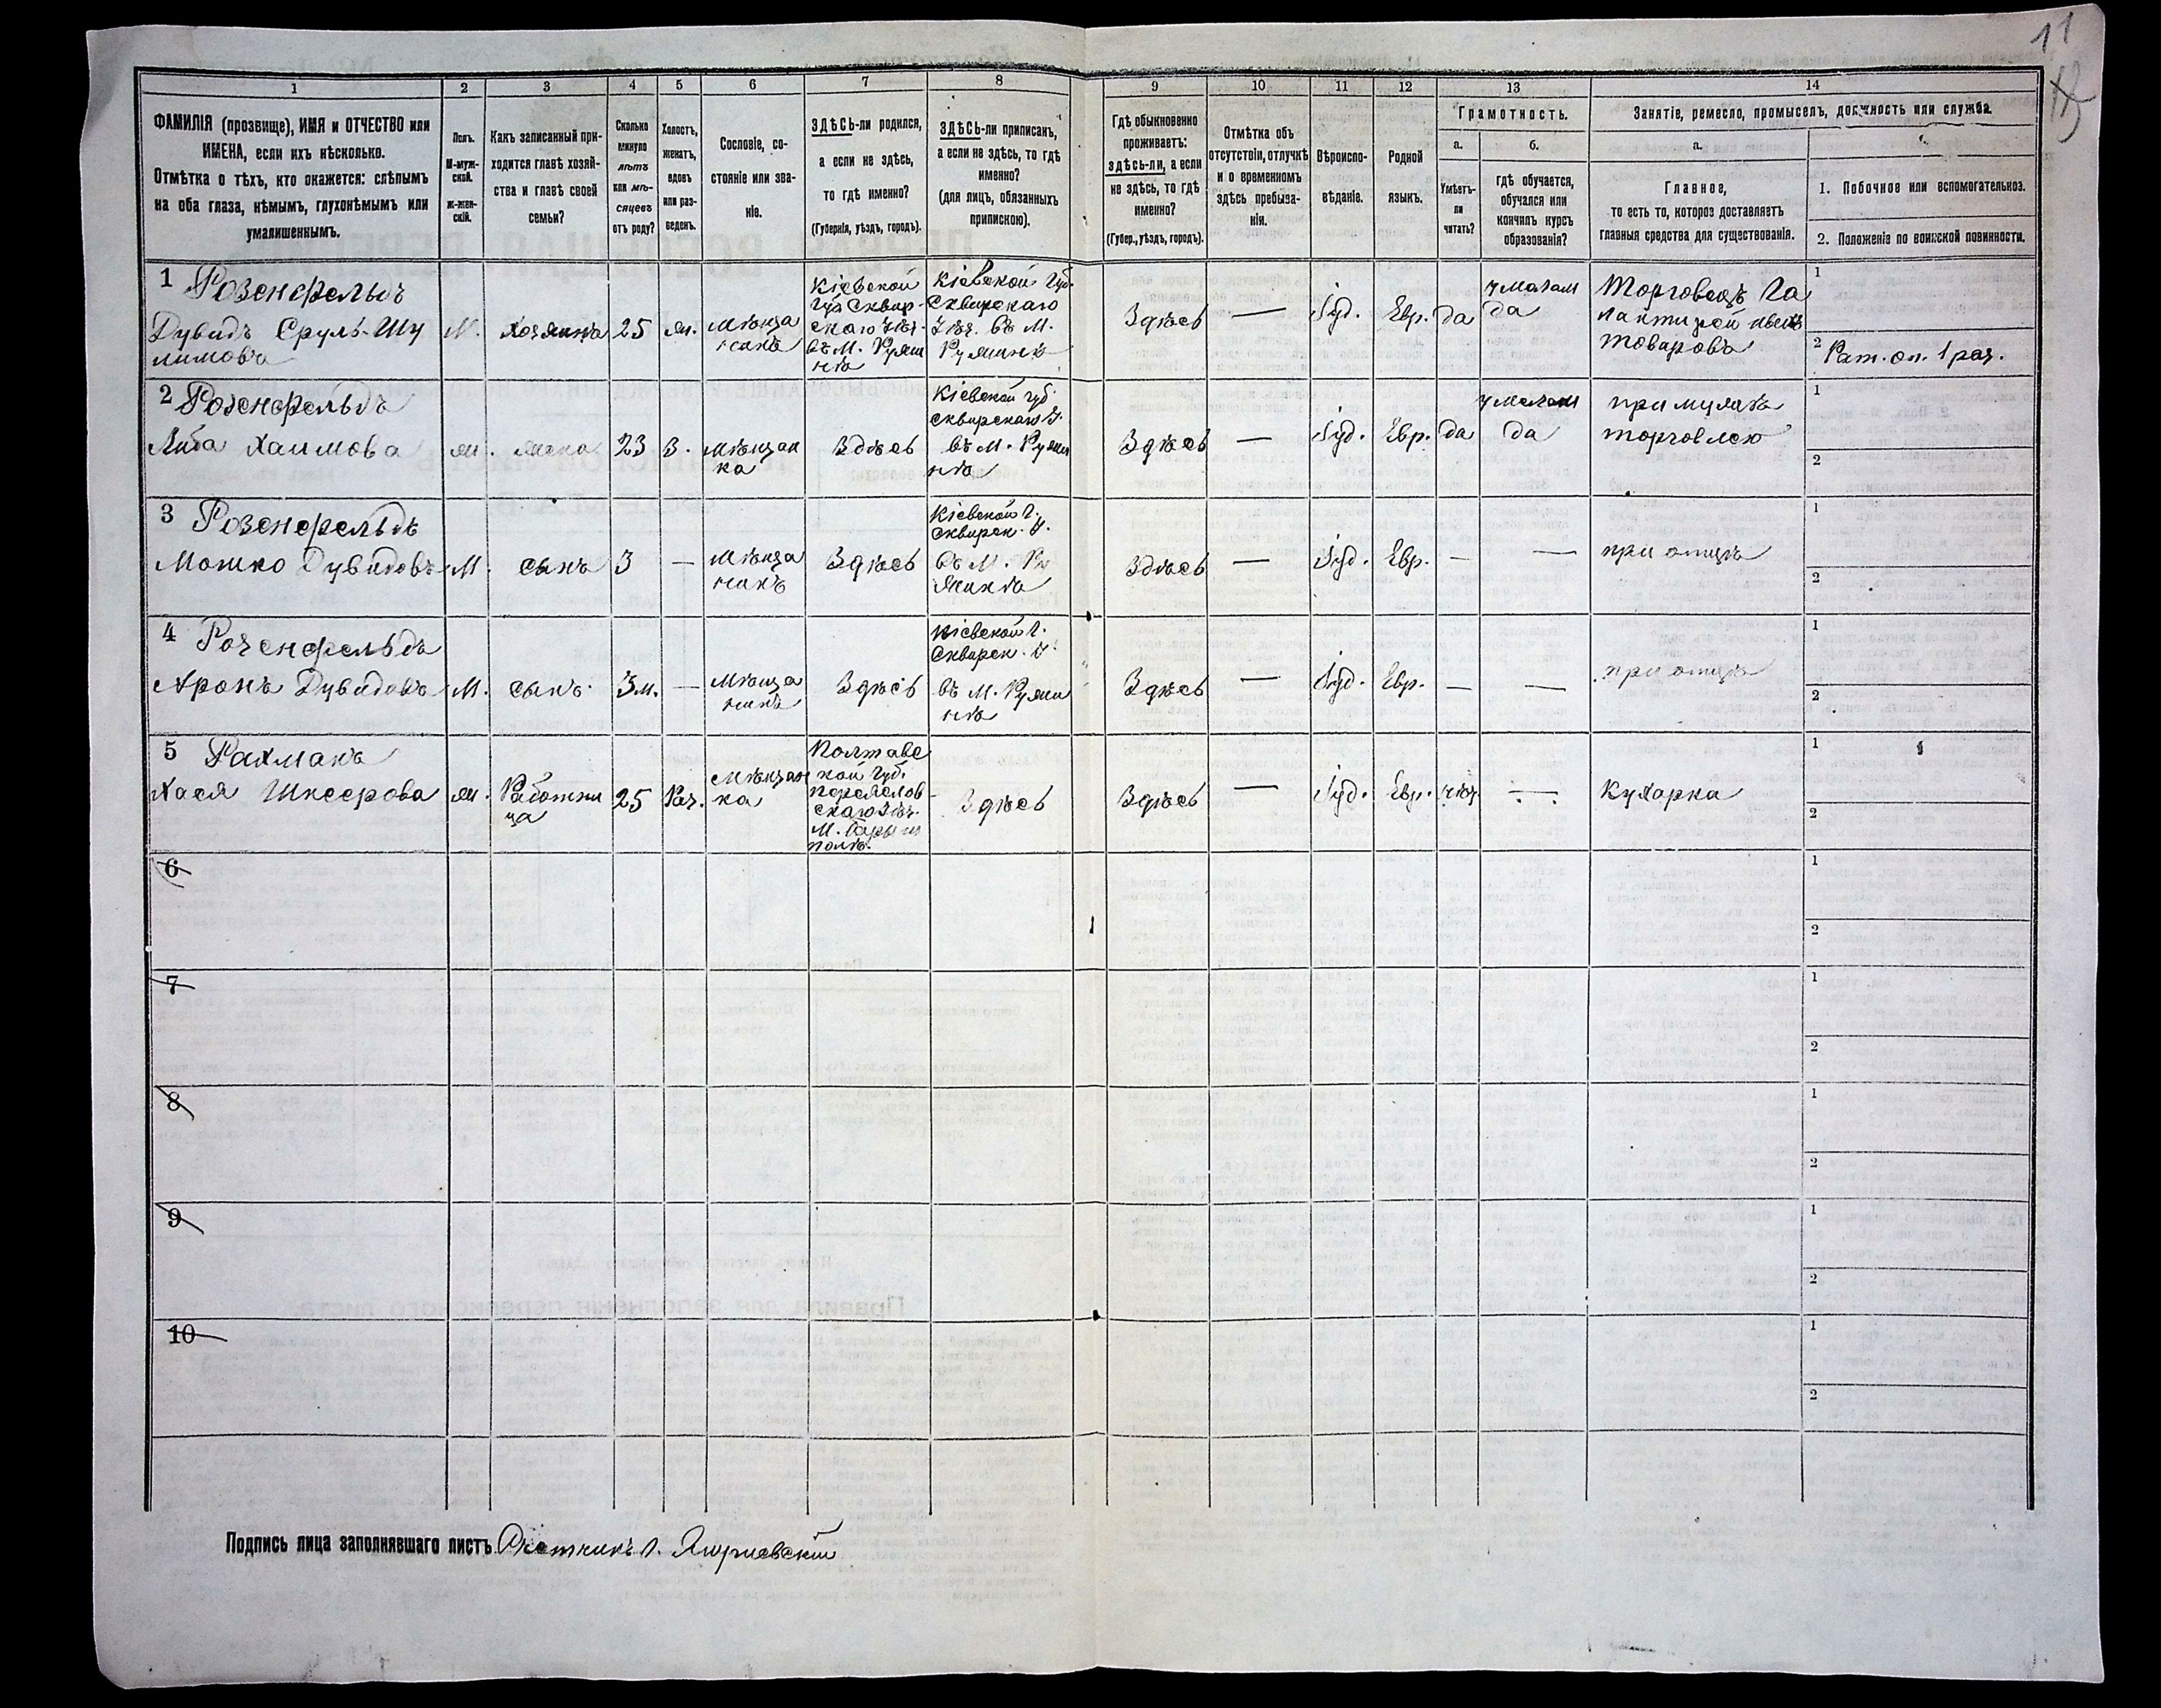 11
1
2
3
4
5
6
7
8
9
10
11
12
13
14
ФАМИЛІЯ (прозвище), ИМЯ и ОТЧЕСТВО или
ИМЕНА, если ихъ нѣсколько.
Отмѣтка о тѣхъ, кто окажется: слѣпымъ
на оба глаза, нѣмымъ, глухонѣмымъ или
умалишеннымъ.
Полъ.
М-муж-
ской.
Ж-жен-
скій.
Какъ записанный при-
ходится главѣ хозяй-
ства и главѣ своей
семьи?
Сколько
минуло
лѣтъ
или мѣ-
сяцевъ
отъ роду?
Холостъ,
женатъ,
вдовъ
или раз-
веденъ.
Сословіе, со-
стояніе или зва-
ніе.
ЗДѢСЬ-ли родился,
а если не здѣсь,
то гдѣ именно?
(Губернія, уѣздъ, городъ).
ЗДѢСЬ-ли приписанъ,
а если не здѣсь, то гдѣ
именно?
(для лицъ, обязанныхъ
припискою).
Гдѣ обыкновенно
проживаетъ:
здѣсь-ли, а если
не здѣсь, то гдѣ
именно?
(Губер., уѣздъ, городъ).
Отмѣтка объ
отсутствіи, отлучкѣ
и о временномъ
здѣсь пребыва-
ніи.
Вѣроиспо-
вѣданіе.
Родной
языкъ.
Грамотность.
а.
Умѣетъ-
ли
читать?
б.
гдѣ обучается,
обучался или
кончилъ курсъ
образованія?
Занятіе, ремесло, промыселъ, должность или служба.
а.
Главное,
то есть то, которое доставляетъ
главныя средства для существованія.
1. Побочное или вспомогательное.
2. Положеніе по воинской повинности.
1 Розенфельдъ
Дувидъ Сруль-Шу
лимовъ
М.
Хозяинъ
25
ж.
Мѣща
нинъ
Кіевской
Губ. Сквир-
скаго Уѣз.
въ М. Ружи
нѣ
Кіевской Губ.
Сквирскаго
Уѣз. въ М.
Ружинѣ
Здѣсь
—
Іуд.
Евр.
да
у мелам
да
Торговецъ Га
товаровъ
1
2 Рат. оп. 1 раз.
2 Розенфельдъ
Хаимова
ж.
жена
23
З.
Мѣщан
ка
Здѣсь
Кіевской губ.
Сквирскаго У.
въ М. Ружи
нѣ
Здѣсь
—
Іуд.
Евр.
да
у мелам
да
при мужѣ
торговлею
1
2
3 Розенфельдъ
Мошко Дувидовъ
М.
сынъ
3
—
Мѣща
нинъ
Здѣсь
Кіевской Г.
Сквирск. У.
въ М. Ру
жинѣ
Здѣсь
—
Іуд.
Евр.
—
—
при отцѣ
1
2
4 Розенфельдъ
Аронъ Дувидовъ
М.
сынъ
3м.
—
Мѣща
нинъ
Здѣсь
Кіевской Г.
Сквирск. У.
въ М. Ружи
нѣ
Здѣсь
—
Іуд.
Евр.
—
—
при отцѣ
1
2
5 Рахманъ
Хася Шнеерова
ж.
Работни
ца
25
Раз.
Мѣщан
ка
Полтавс
кой Губ.
Переяслов-
скаго Уѣз.
М. Борыс
полѣ.
Здѣсь
Здѣсь
—
Іуд.
Евр.
—
Кухарка
1
2
6
1
2
7
1
2
8
1
2
9
1
2
10
1
2
Подпись лица заполнявшаго листъ